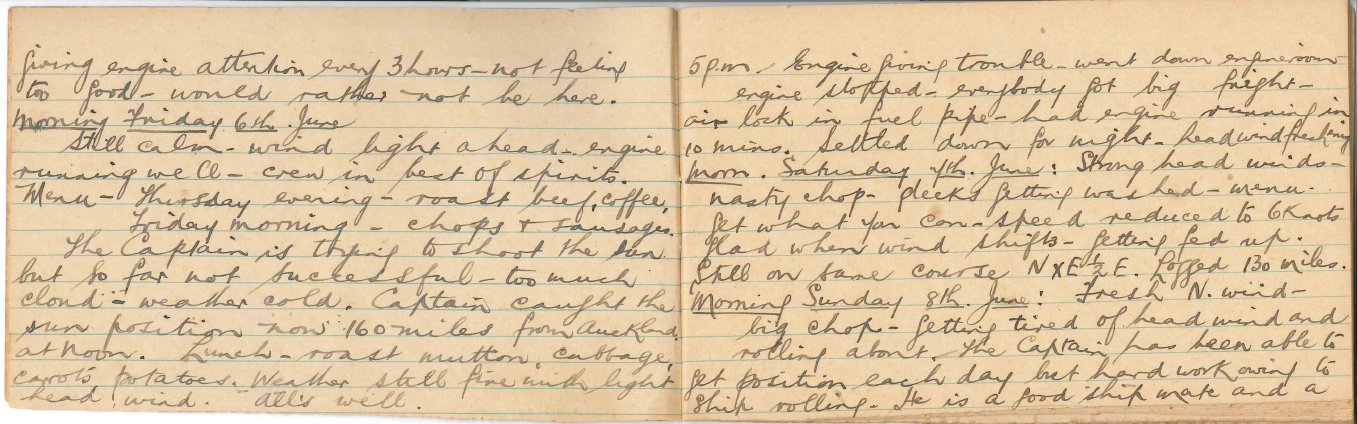 giving engine attention every 3 hours - not feeling
too good - would rather not be here.
Morning Friday 6th. June
Still calm - wind light ahead - engine
running well - crew in best of spirits.
Menu - Thursday evening - roast beef, coffee,
Friday morning - chops & sausages.
The Captain is trying to shoot the sun
but so far not successful - too much
cloud - weather cold. Captain caught the
sun position now 160 miles from Auckland
at noon. Lunch - roast mutton, cabbage,
carrots, potatoes. Weather still fine with light
head wind. All's well.
5 p.m. Engine giving trouble - went down engineroom
engine stopped - everybody got big fright -
air lock in fuel pipe - had engine running in
10 mins. Settled down for night - head wind freshening
Morn. Saturday 7th. June: Strong head winds -
nasty chop - decks getting washed - menu -
get what you can - speed reduced to 6 Knots
Glad when wind shifts - getting fed up.
Still on same course N x E ½ E. Logged 130 miles.
Morning Sunday 8th. June: Fresh N. wind -
big chop - getting tired of head wind and
rolling about. The Captain has been able to
get position each day but hard work owing to
ship rolling. He is a good ship mate and a